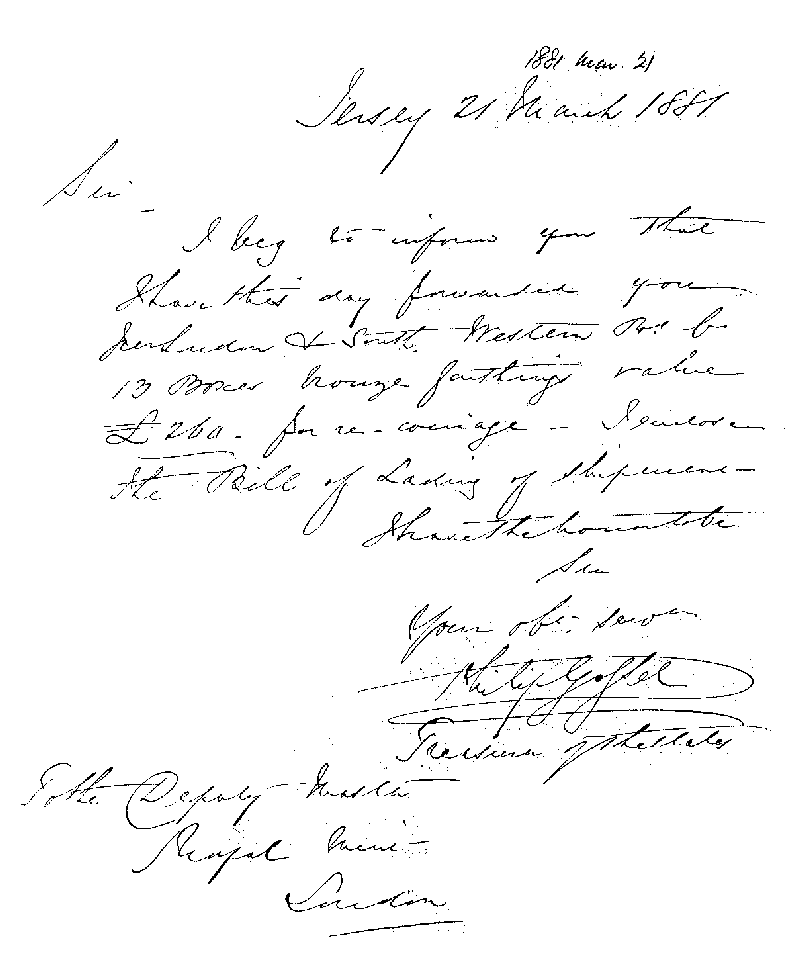 1881 Mar. 21
Jersey 21 March 1881
Sir -
I beg to inform you that
I have this day forwarded you
per London & South Western Ry Co
13 Boxes bronze farthings value
£260. for re-coinage - I enclose
the Bill of Lading of shipment -
I have the honour to be
Sir
Your obt. servt
Philip Gosset
Treasurer of the States
To the Deputy Master
Royal Mint
London